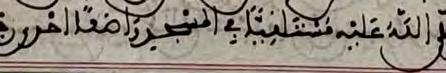 الله عليه مستلقيا في المسجد واضعا احدى